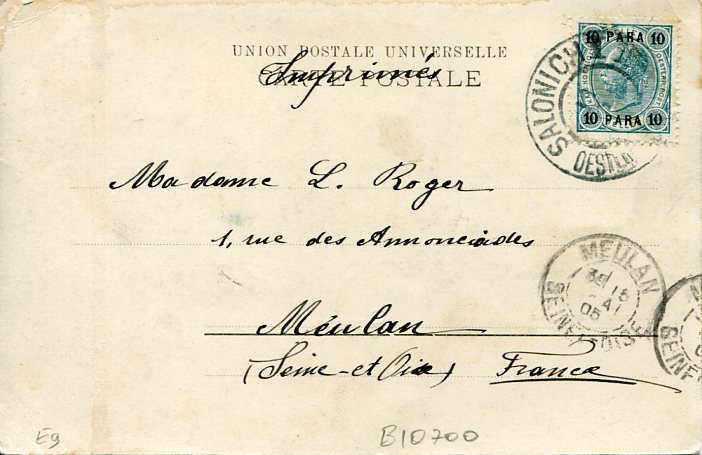 UNION POSTALE UNIVERSELLE
CARTE POSTALE
Imprimés
10 PARA 10
10 PARA 10
SALONICH
OESTER
Madame L. Roger
1, rue des Annonciades
Méulan
(Seine-et-Oise) France
MEULAN
15
MAI
05
SEINE-ET-OISE
SEINE
E9
B10700